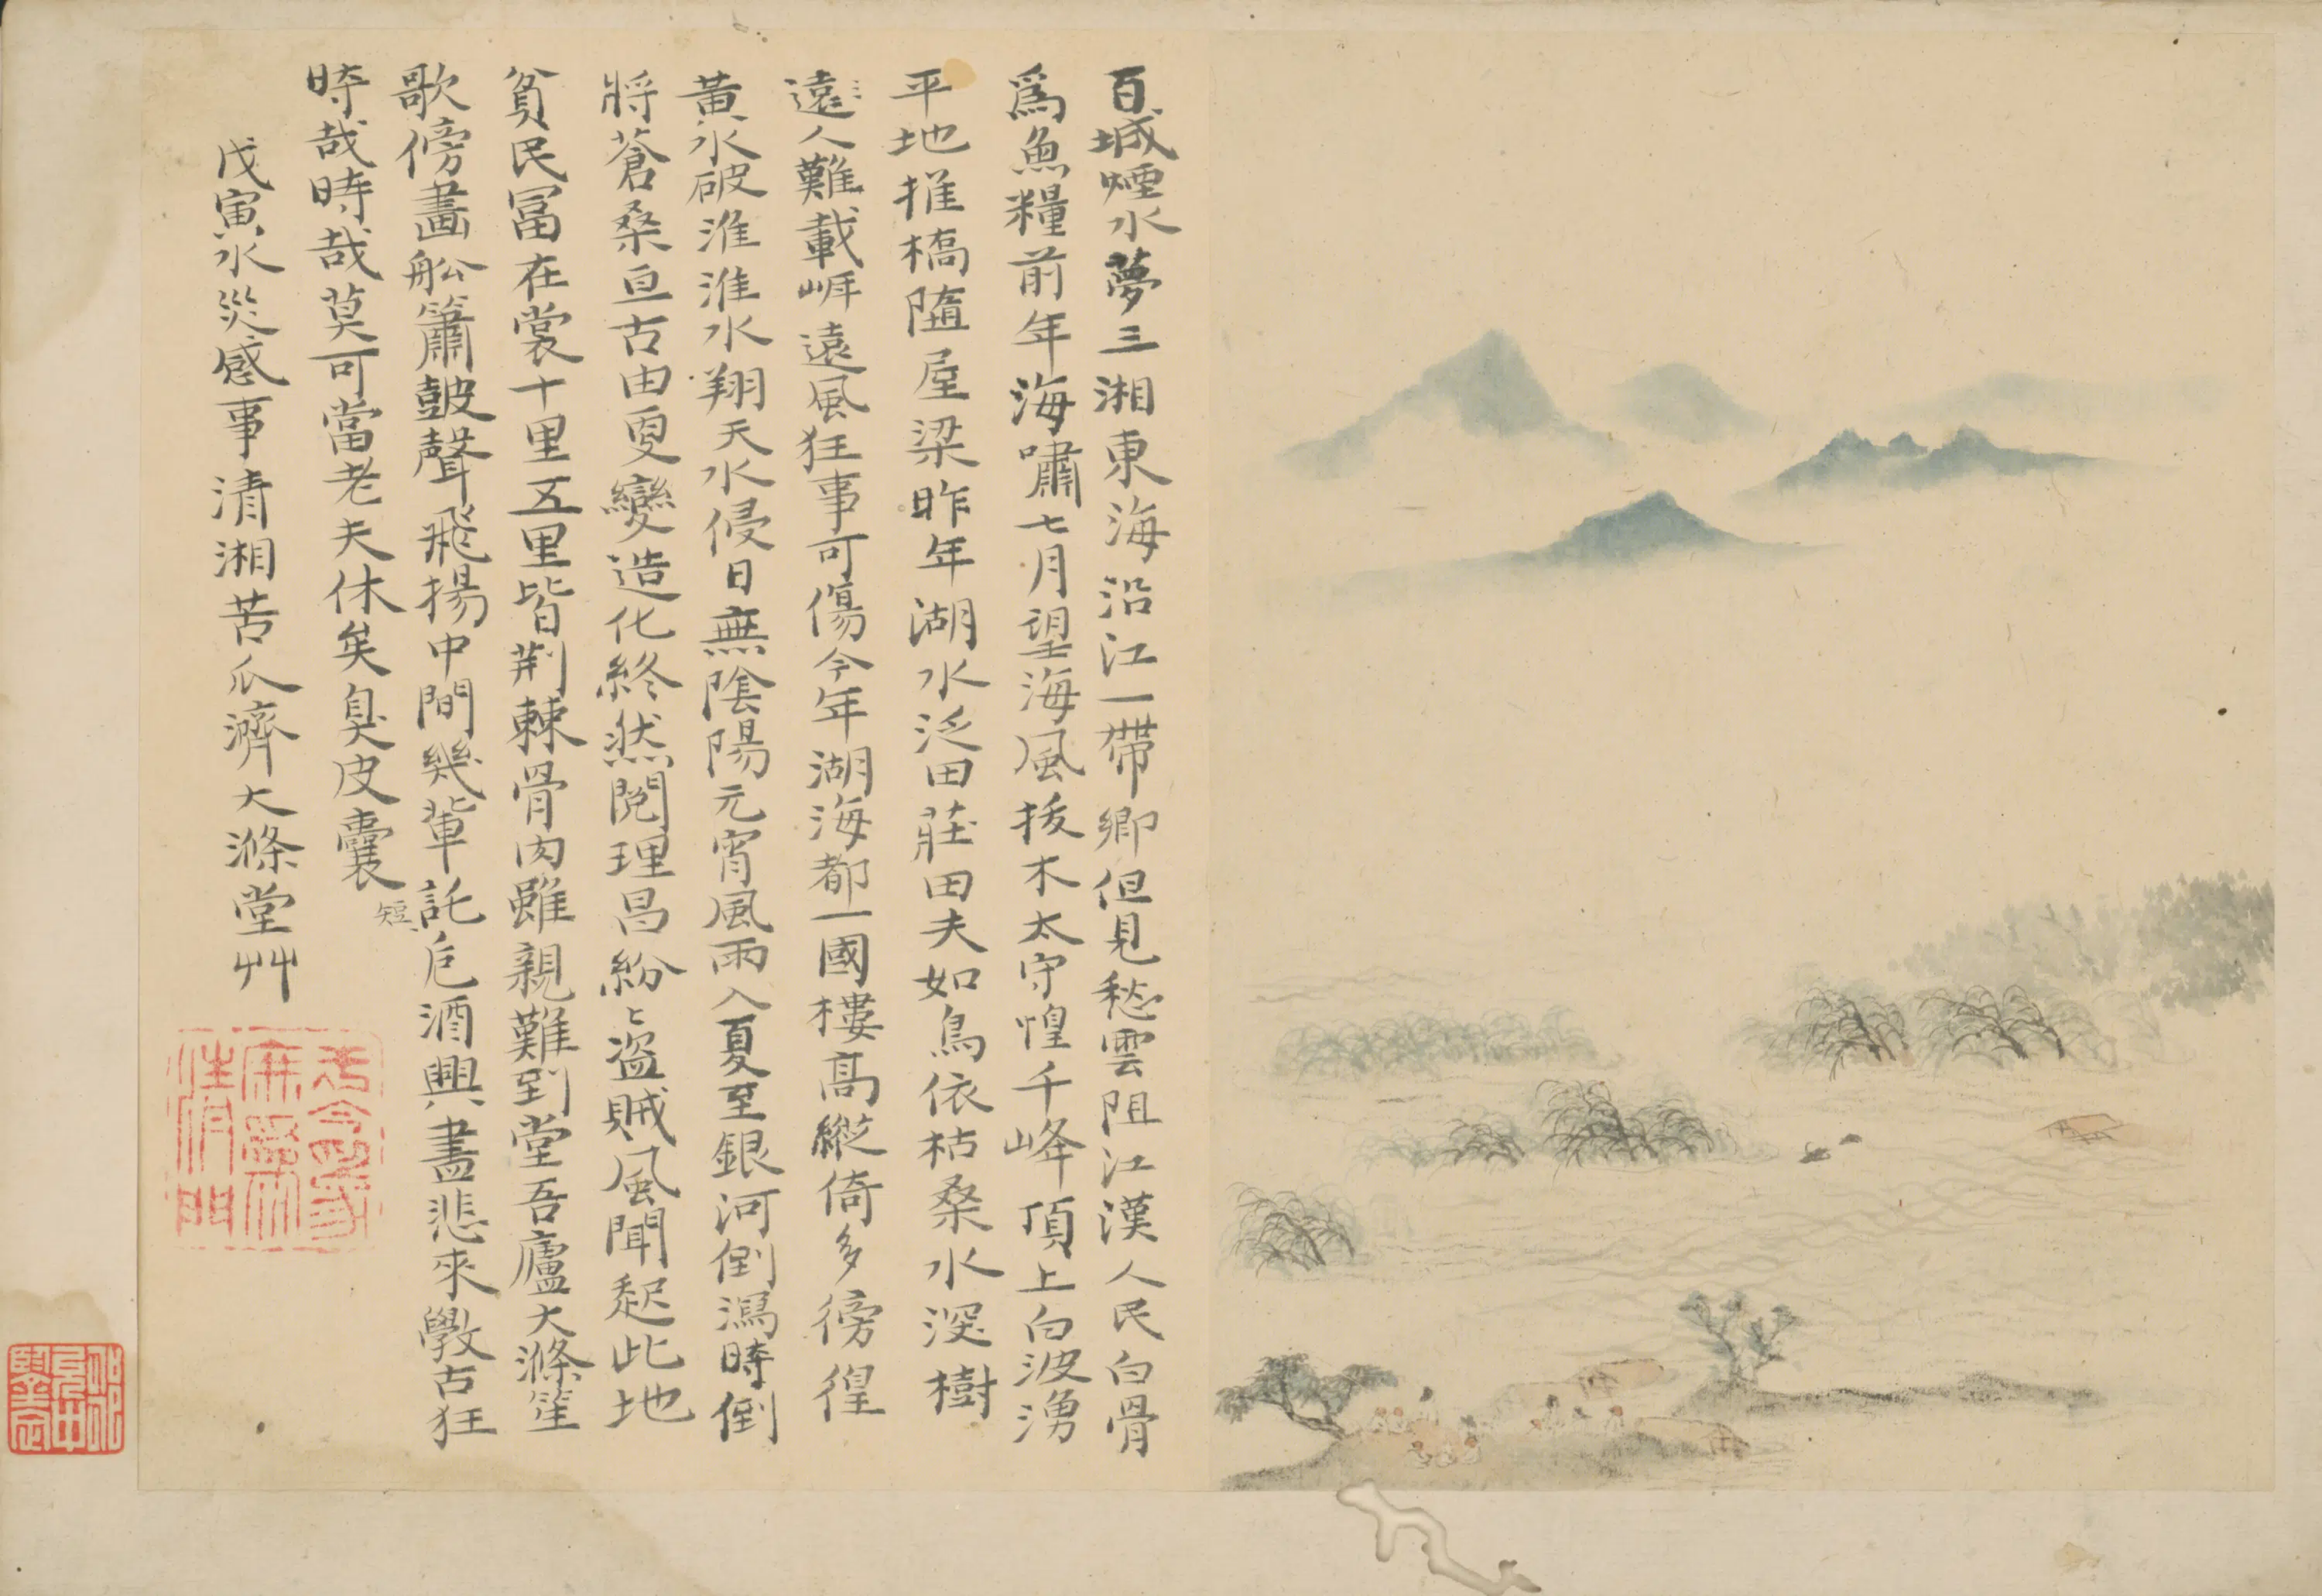 百城煙水夢三湘東海沿江一帶鄉但見愁雲阻江漢人民白骨
爲魚糧前年海嘯七月望海風拔木太守惶千峰頂上白波湧
平地摧橋隨屋梁昨年湖水泛田莊田夫如鳥依枯桑水深樹
遠人難載崕遠風狂事可傷今年湖海都一國樓高縱倚多徬徨
黃水破淮淮水翔天水侵日無陰陽元宵風雨入夏至銀河倒瀉時倒
將蒼桑亘古由更變造化終然閱理昌紛〻盜賊風聞起此地
貧民冨在裳十里五里皆荆棘骨肉雖親難到堂吾廬大滌筆
歌傍畫舩簫皷聲飛揚中間幾輩託卮酒興盡悲來學古狂
時哉時哉莫可當老夫休矣臭皮囊
短
戊寅水災感事清湘苦瓜濟大滌堂艸